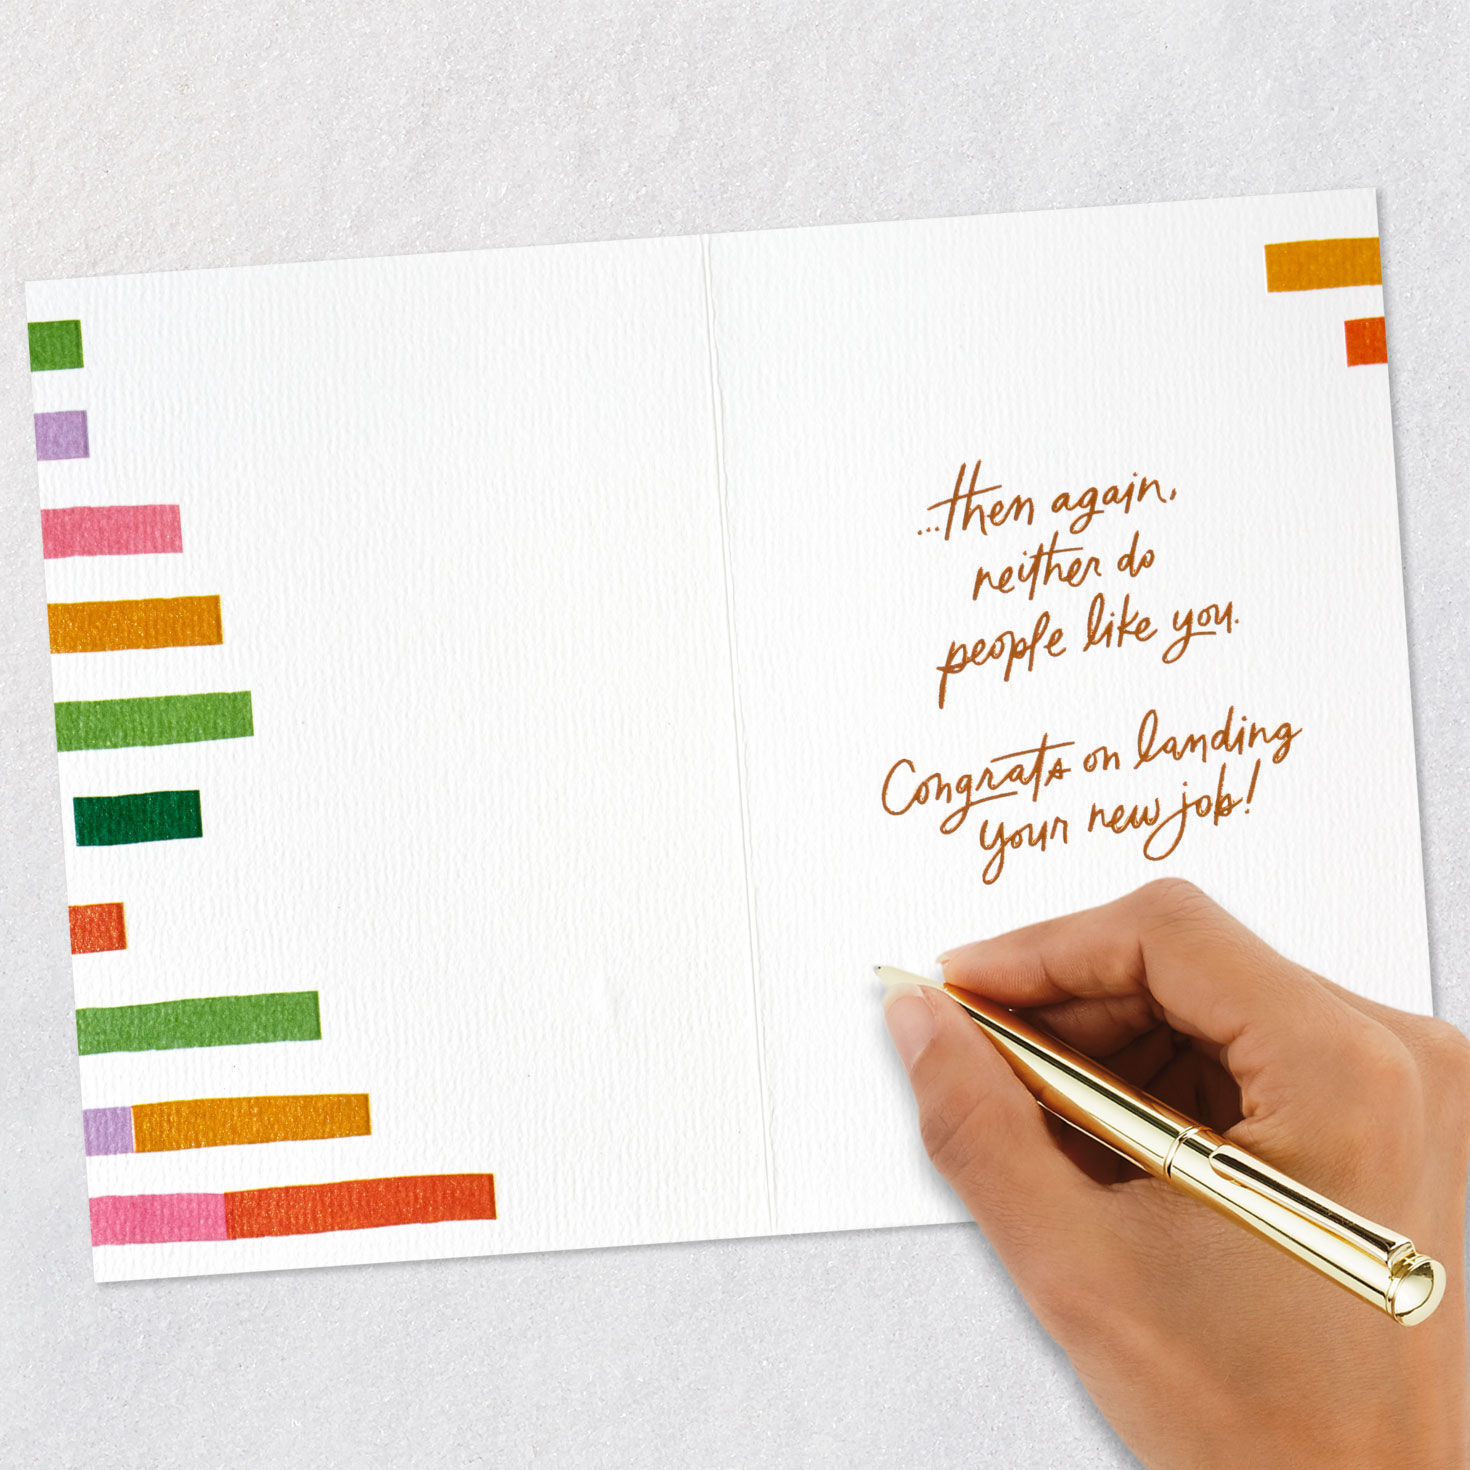 ...then again,
neither do
people like you.
Congrats on landing
your new job!